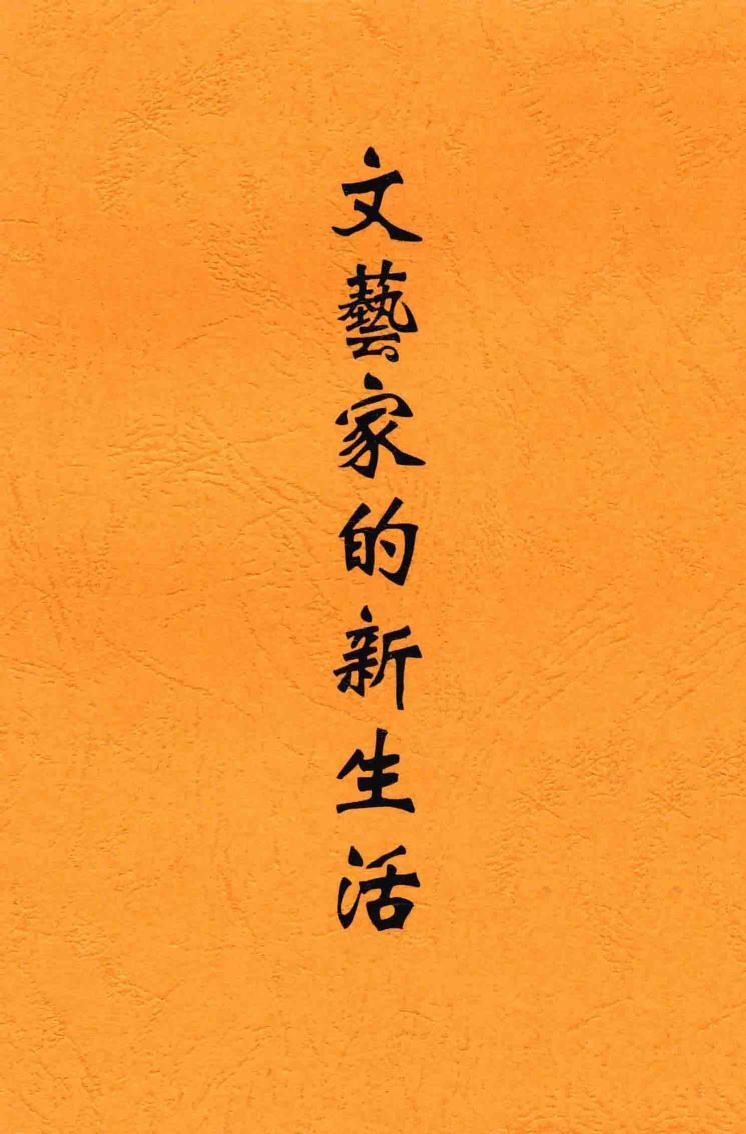 文藝家的新生活